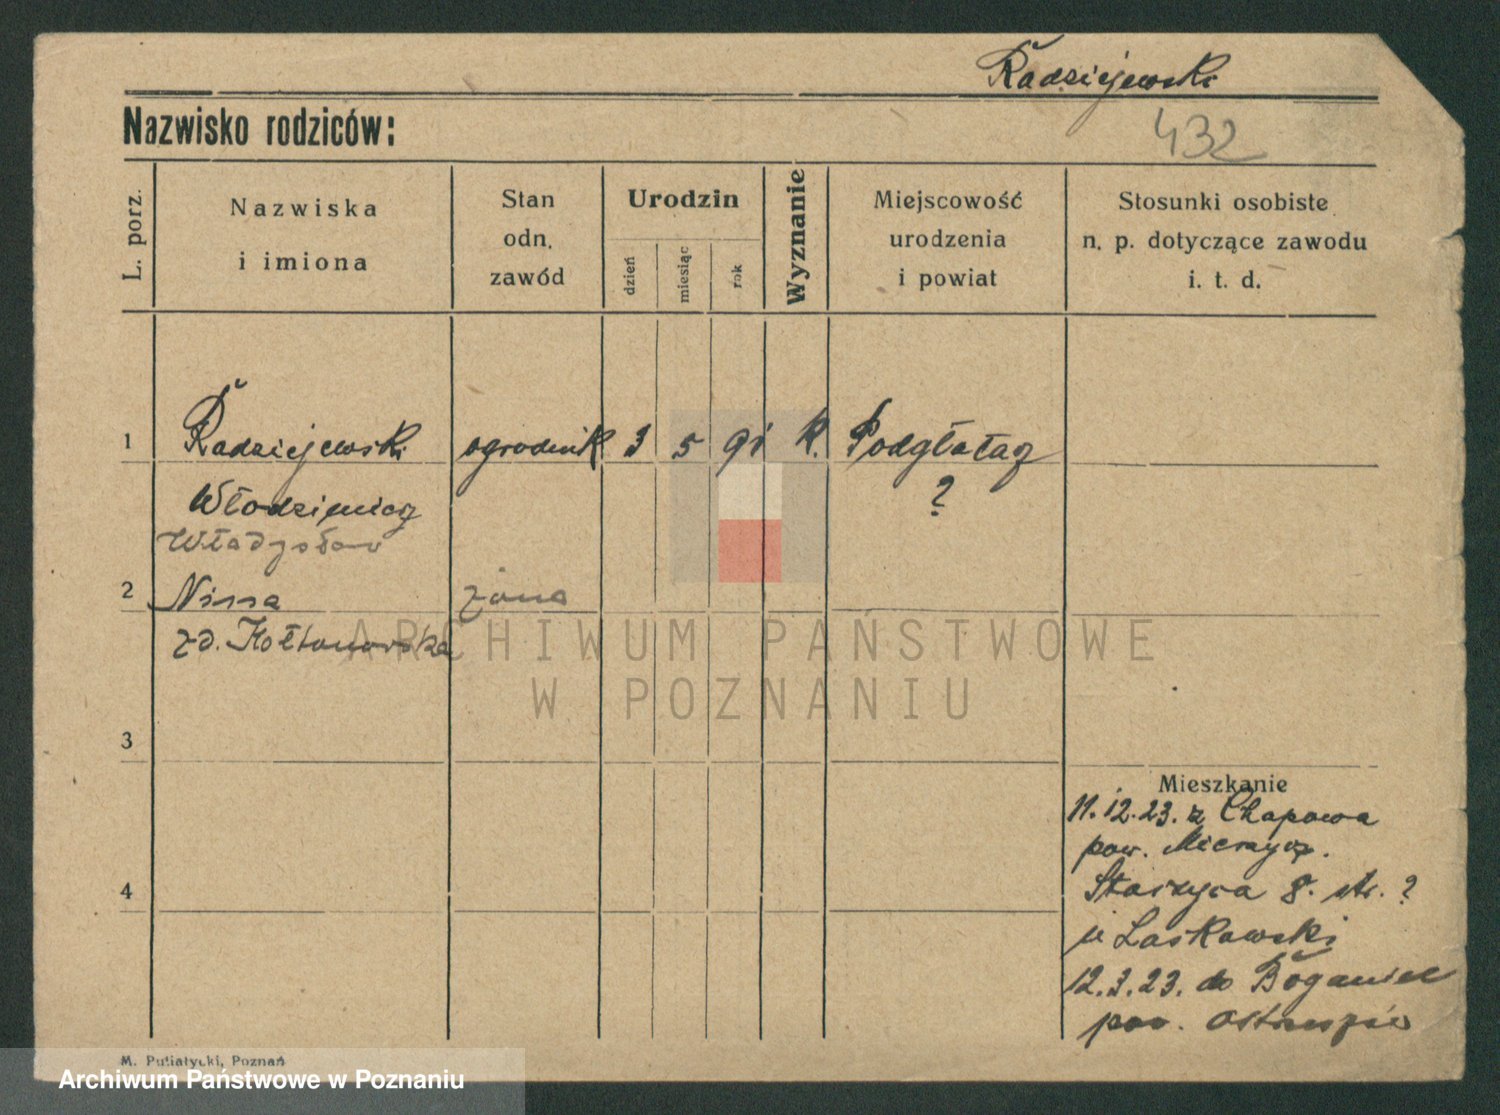 Radziejewski
Nazwisko rodziców:
432
L. porz.
Nazwiska
i imiona
Stan
odn.
zawód
Urodzin
dzień
miesiąc
rok
Wyznanie
Miejscowość
urodzenia
i powiat
Stosunki osobiste
n. p. dotyczące zawodu
i. t. d.
1 Radziejewski ogrodnik 3 5 91 k.
?
Włodzimierz
Władysław
2 Nina żona
zd. Kołtonowska
ARCHIWUM PAŃSTWOWE
W POZNANIU
3
Mieszkanie
11.12.23. z Chapowa
pow.
4
Staszyca 8. str. ?
Laskowski
12.3.23. do Boganiel
pow.
M. Putiatycki, Poznań
Archiwum Państwowe w Poznaniu